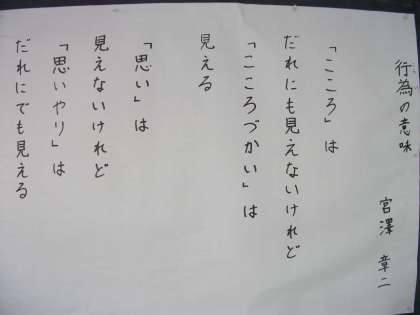 行為の意味
宮澤 章二
「こころ」は
だれにも見えないけれど
「こころづかい」は
見える
「思い」は
見えないけれど
「思いやり」は
だれにでも見える